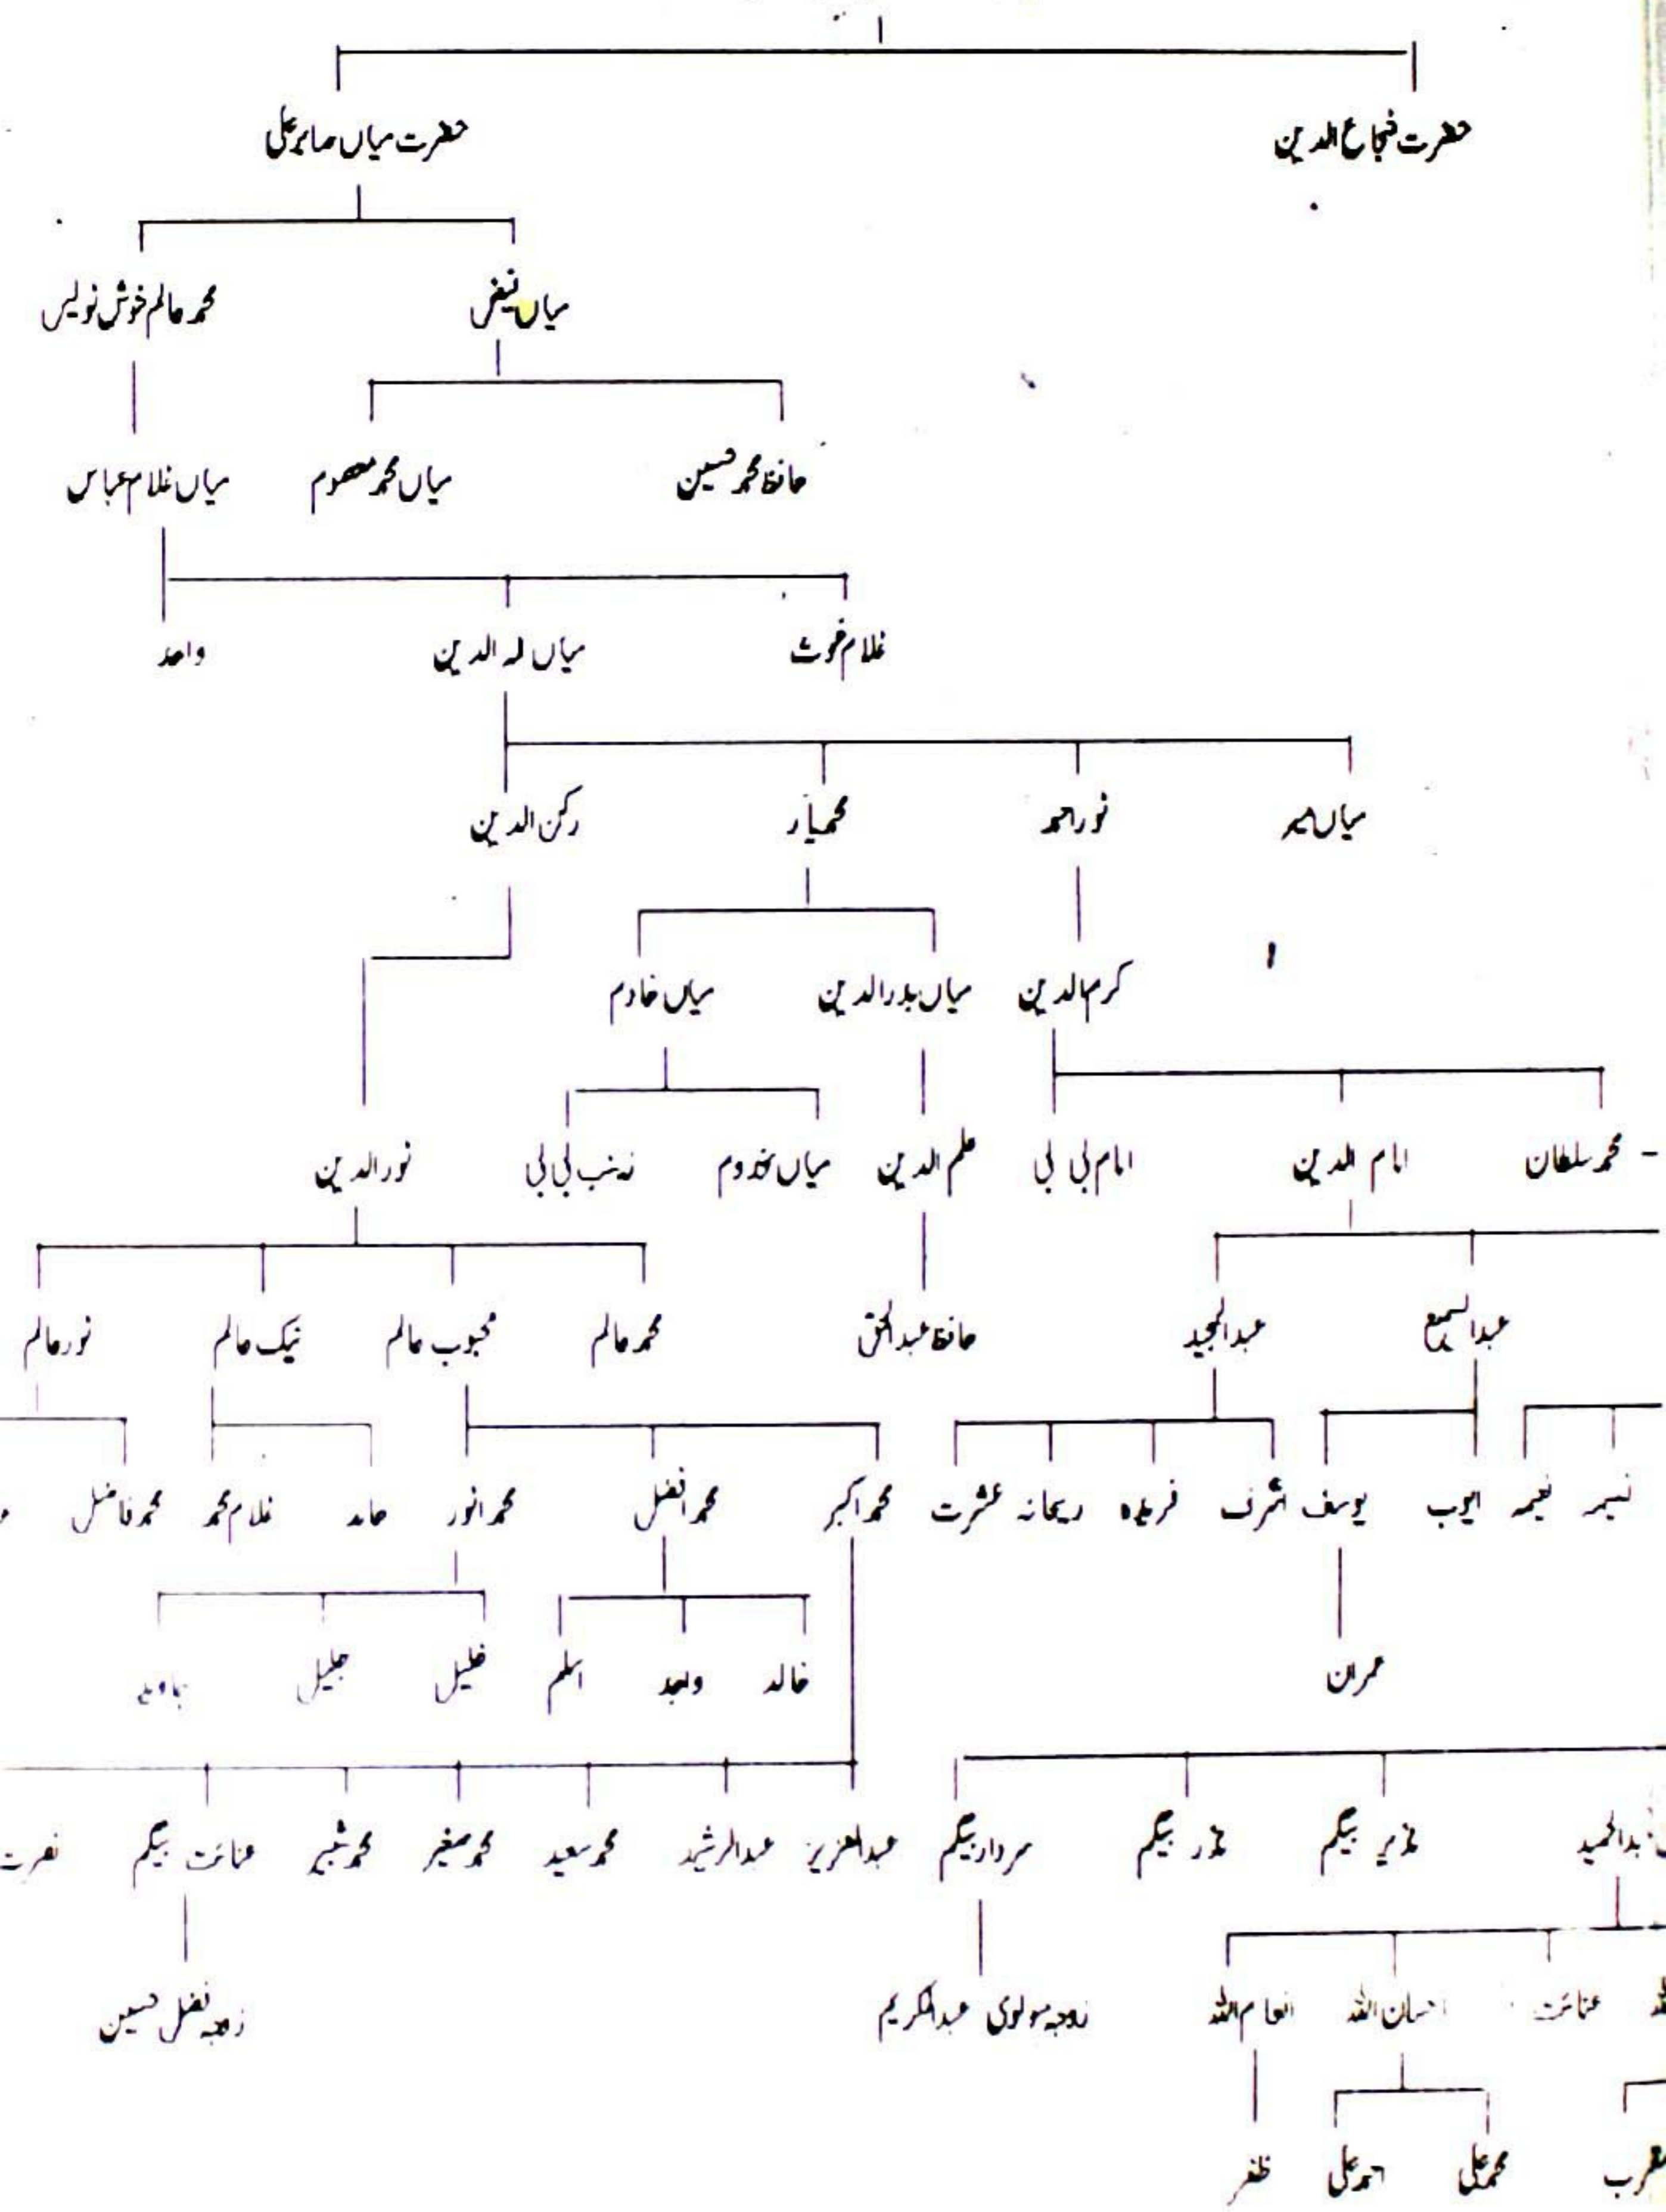 حضرت شجاع الدین حضرت میاں صابر علی
میاں فیض محمد عالم خوش نویس
حافظ محمد حسین میاں محمد معصوم میاں غلام عباس
غلام غوث میاں لہ الدین واحد
میاں میر نور احمد محمد یار رکن الدین
کرم الدین میاں بدر الدین میاں خادم
محمد سلطان - امام الدین امام بی بی علم الدین میاں مخدوم زینب بی بی نور الدین
عبدالسمیع عبدالمجید حافظ عبدالحق محمد عالم محبوب عالم نیک عالم نور عالم
نسیمہ نعیمہ ایوب یوسف اشرف فریدہ ریحانہ عشرت محمد اکبر محمد افضل محمد انور حامد غلام محمد محمد فاضل
عمران خالد واجد اسلم خلیل جلیل
عبدالحمید نذیر بیگم نذر بیگم سردار بیگم عبدالعزیز عبدالرشید محمد سعید محمد صغیر محمد شبیر عنائت بیگم نصرت
عنائت احسان اللہ انعام اللہ زوجہ مولوی عبدالکریم زوجہ فضل حسین
محمد علی احمد علی ظفر